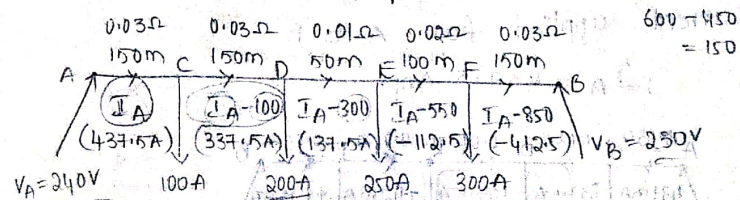 0.03Ω 0.03Ω 0.01Ω 0.02Ω 0.03Ω 600-450
150m 150m 50m 100m 150m = 150
A C D E F B
I_A I_A-100 I_A-300 I_A-550 I_A-850
(437.5A) (337.5A) (137.5A) (-112.5) (-412.5) V_B = 250V
V_A = 240V 100A 200A 250A 300A